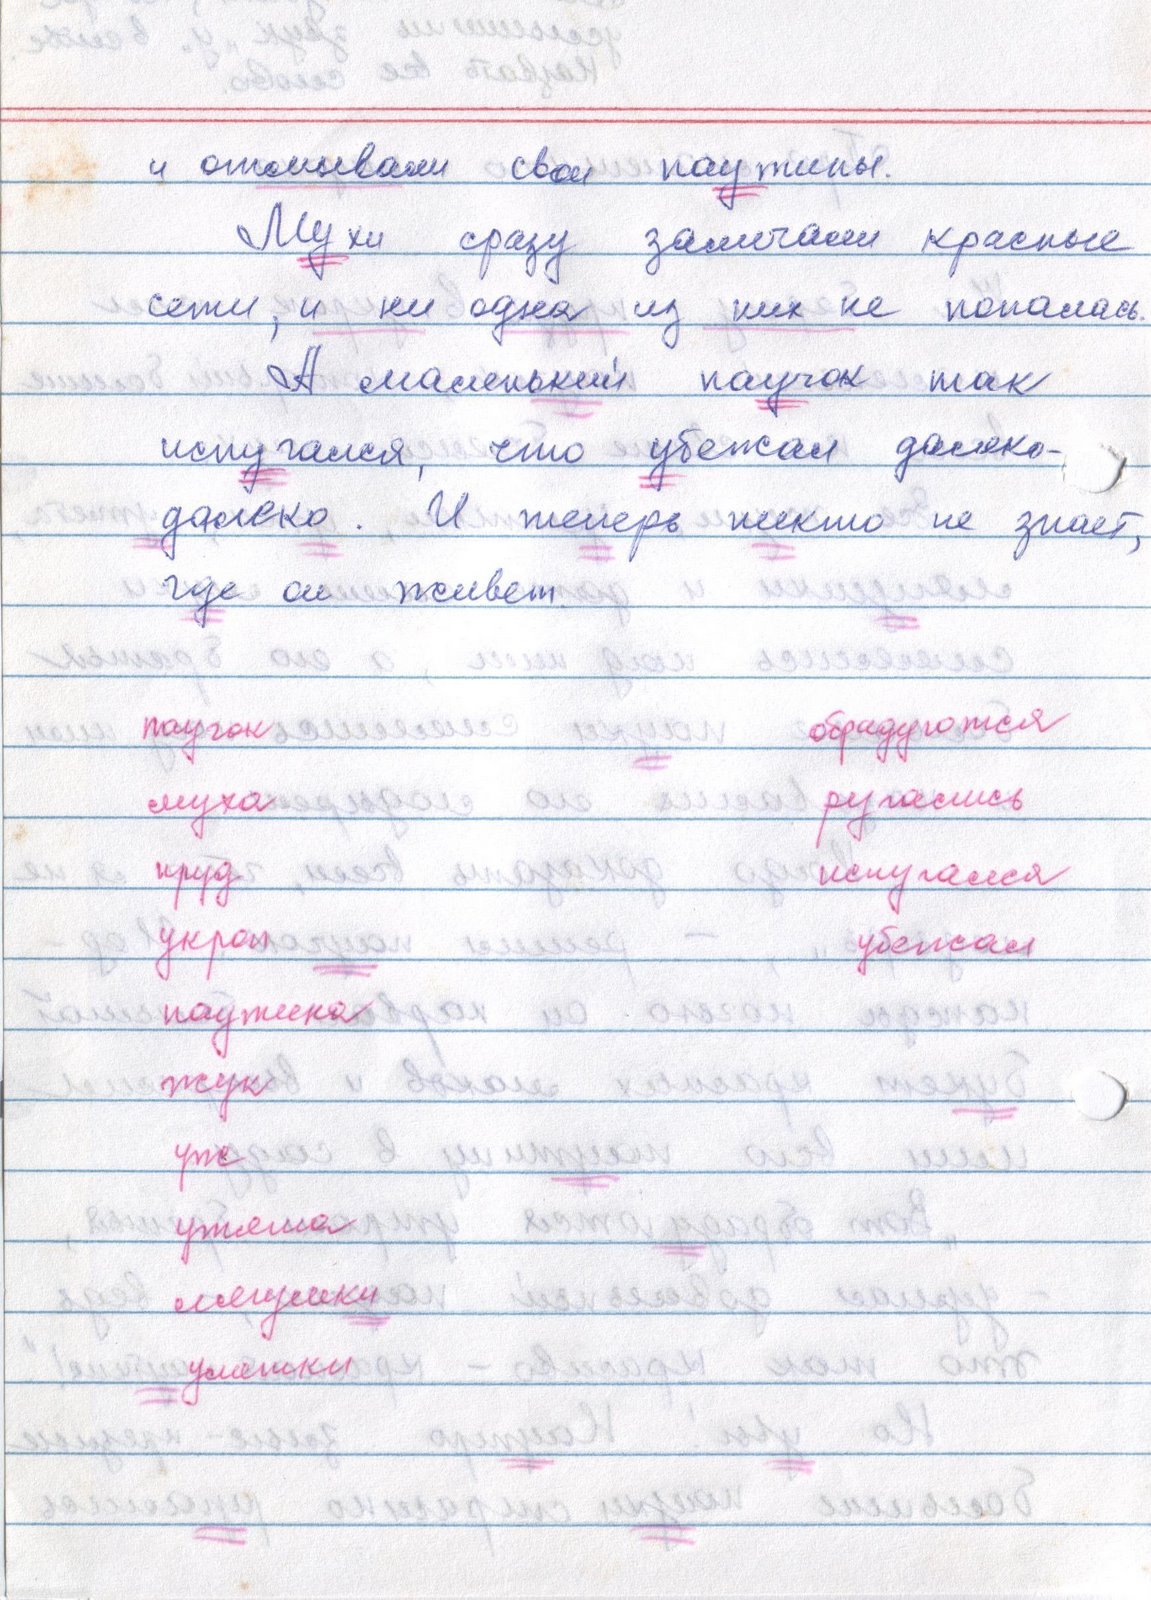 и отмывали свои паутины.
Мухи сразу замечали красные
сети, и ни одна из них не попалась.
А маленький паучок так
испугался, что убежал далеко-
далеко. И теперь никто не знает,
где он живет.
паучок обрадуются
муха ругались
пруд испугался
укроп убежал
паутина
жук
уж
ужата
лягушки
улитки